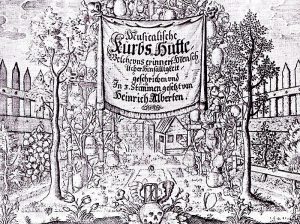 Musicalische
Kürbs Hütte
Welche uns erinnert Mensch
licher Hinfälligkeit
geschrieben und
In 3. Stimmen gesetzt von
Heinrich Alberten.